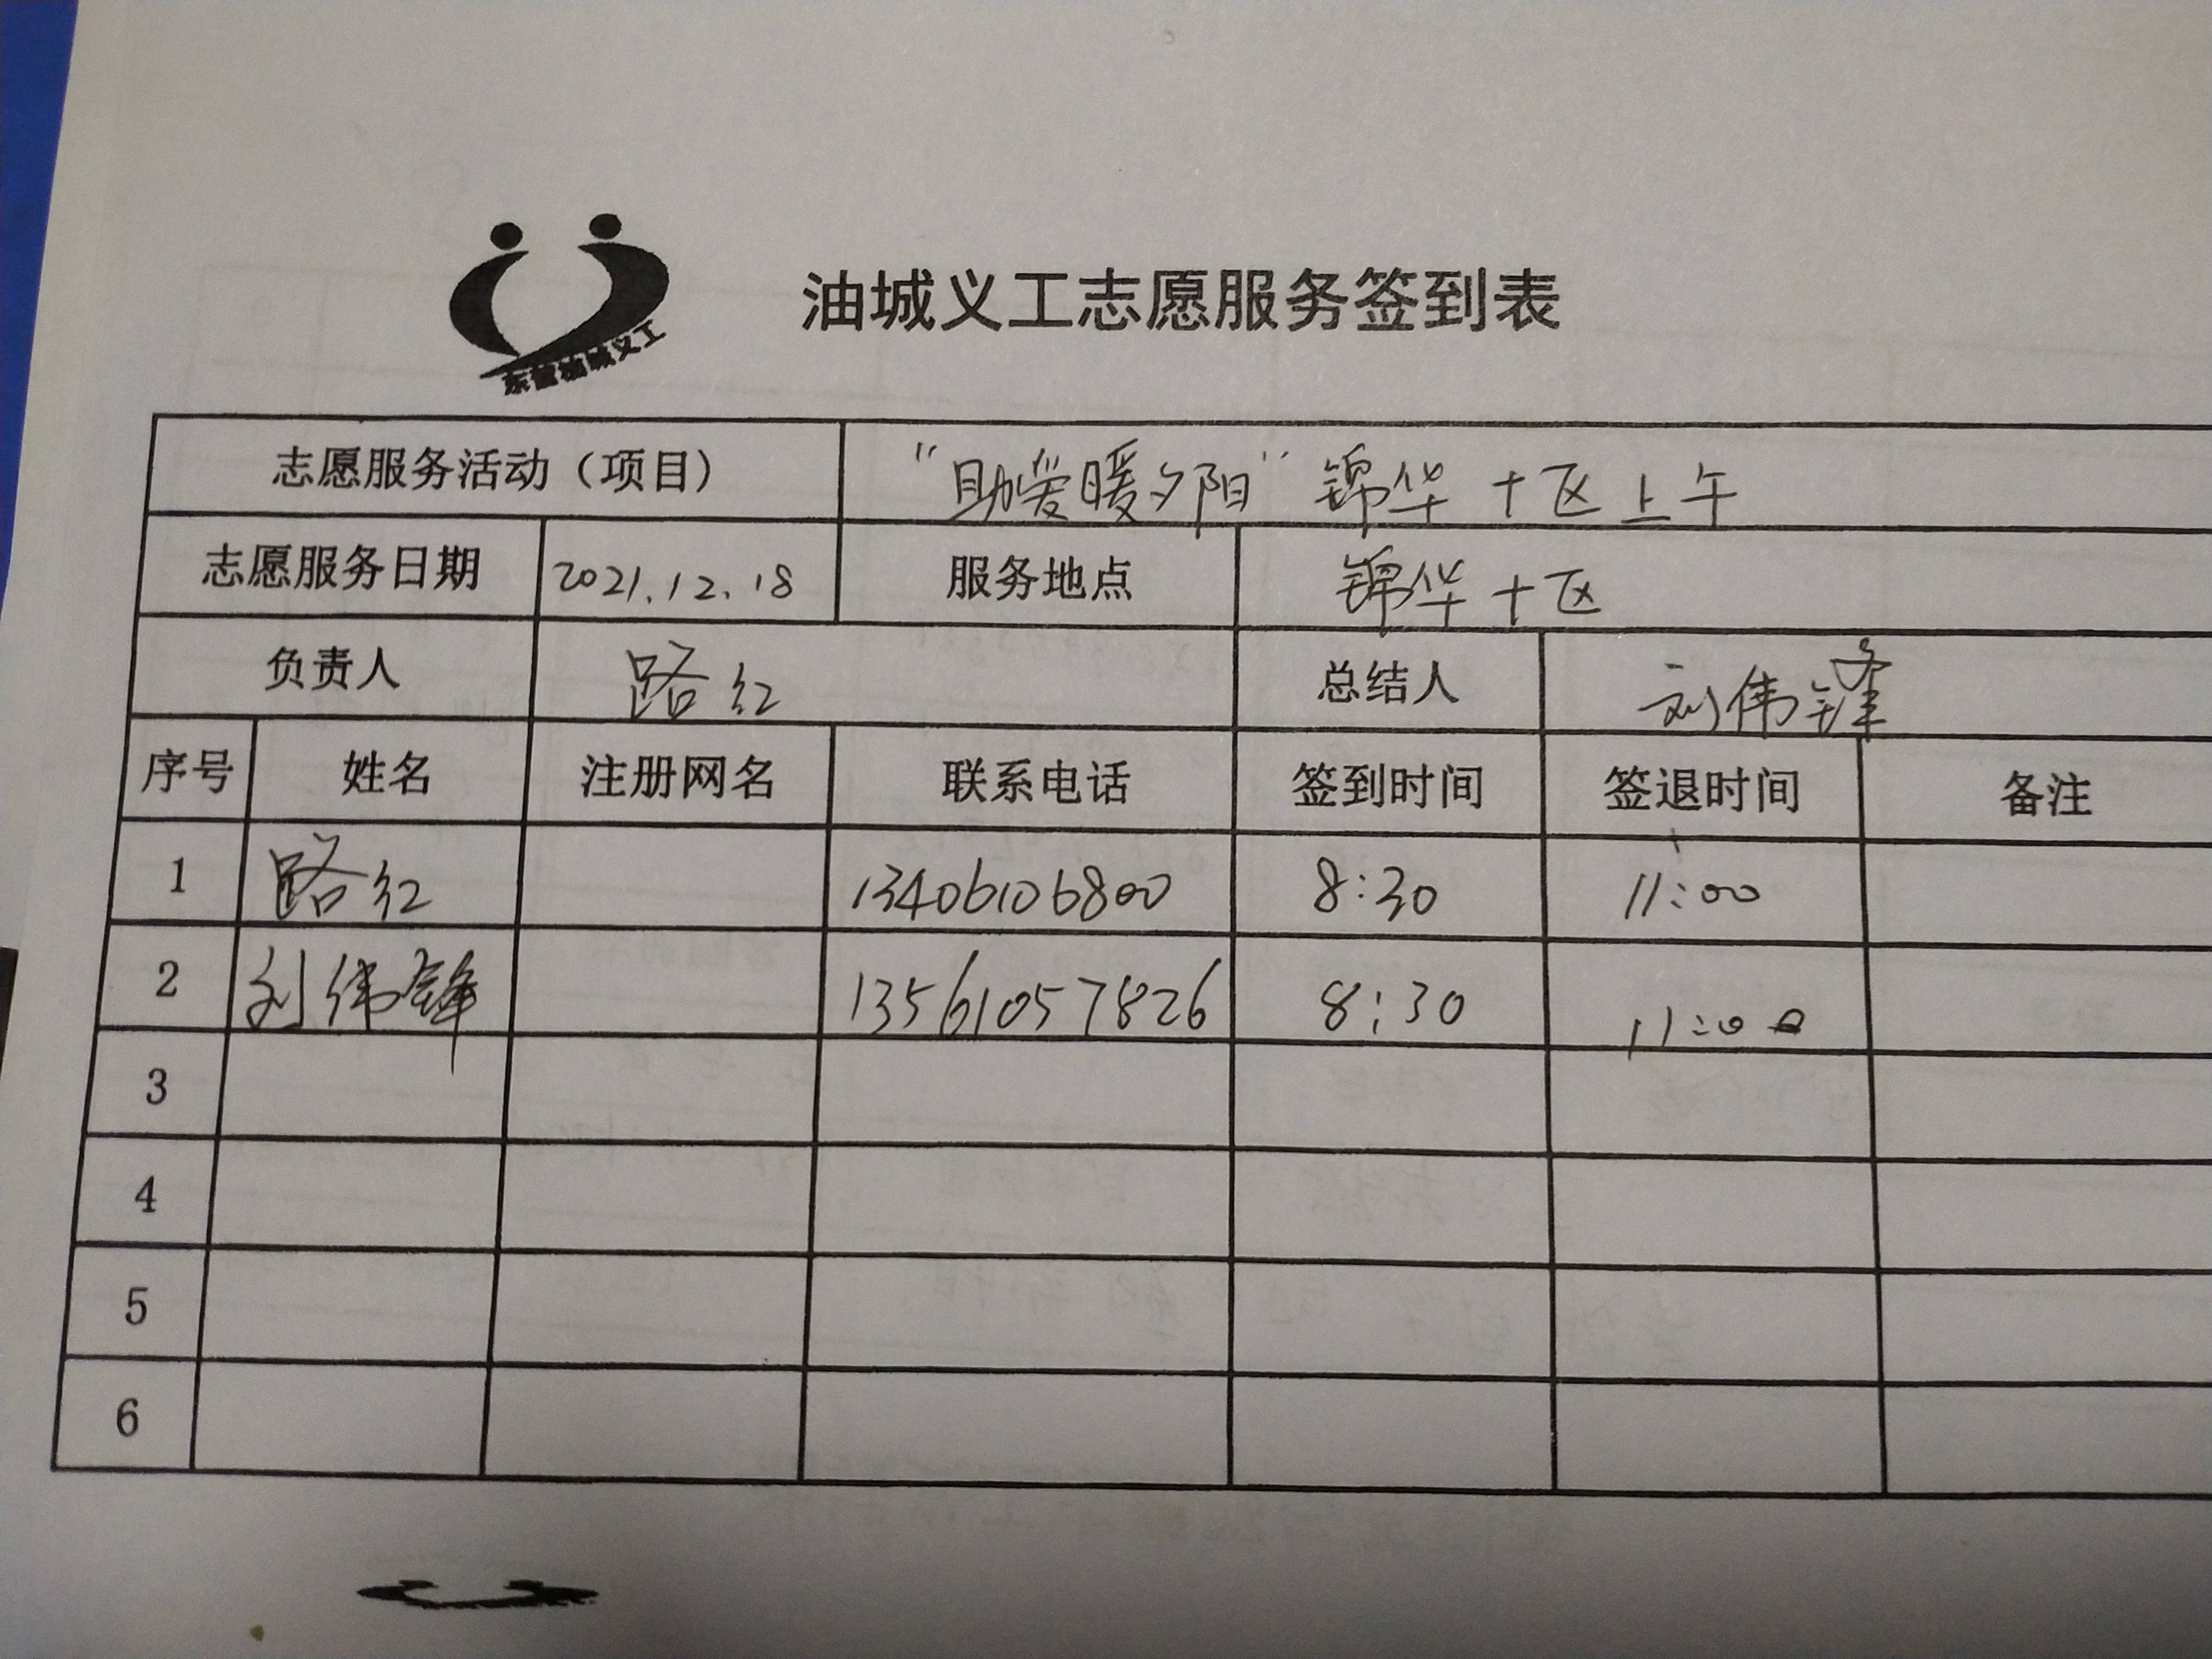 东营油城义工
油城义工志愿服务签到表
志愿服务活动（项目） “助爱暖夕阳”锦华十区上午
志愿服务日期 2021.12.18 服务地点 锦华十区
负责人 路红 总结人 刘伟锋
序号 姓名 注册网名 联系电话 签到时间 签退时间 备注
1 路红 13406106800 8:30 11:00
2 刘伟锋 13561057826 8:30 11:00
3
4
5
6